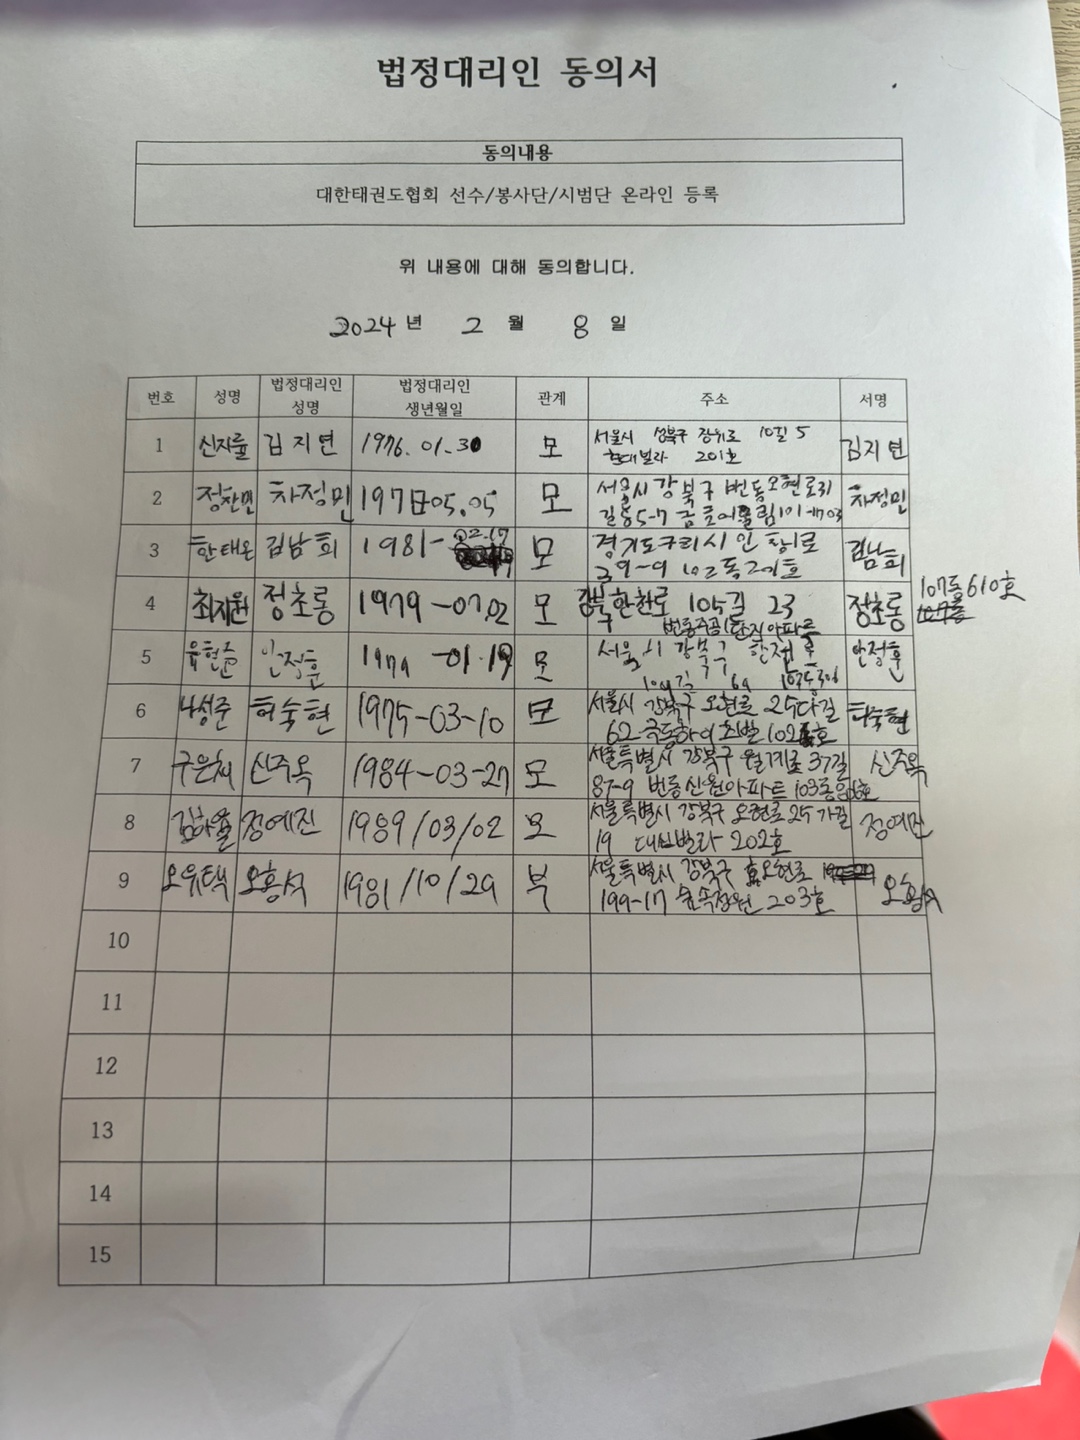 법정대리인 동의서
동의내용
대한태권도협회 선수/봉사단/시범단 온라인 등록
위 내용에 대해 동의합니다.
2024 년 2 월 8 일
번호 성명 법정대리인 성명 법정대리인 생년월일 관계 주소 서명
1 신지율 김지연 1976. 01. 30 모 서울시 성북구 장위로 10길 5 김지연
현대빌라 201호
2 정찬민 차정민 197 05.05 모 서울시 강북구 번동 오현로31 차정민
길 55-7 금호어울림 101-1703
3 한태온 김남희 1981- 02.17 모 경기도 구리시 인창1로 김남희
39-9 102동 201호
4 최지원 정초롱 1979-07.02 모 강북 한천로 105길 23 정초롱 107동 610호
번동주공1단지아파트
5 안정훈 1979 -01.19 모 서울시 강북구 안정훈
6 나성준 허숙현 1975-03-10 모 서울시 강북구 오현로 25다길 허숙현
62
7 신주옥 1984-03-27 모 서울특별시 강북구 월계로 37길 신주옥
87-9 번동신원아파트 103동
8 김하율 정예진 1989/03/02 모 서울특별시 강북구 오현로 25가길 정예진
19 대신빌라 202호
9 오유택 오홍석 1981/10/29 부 서울특별시 강북구 오현로 오홍석
199-17 숲속정원 203호
10
11
12
13
14
15